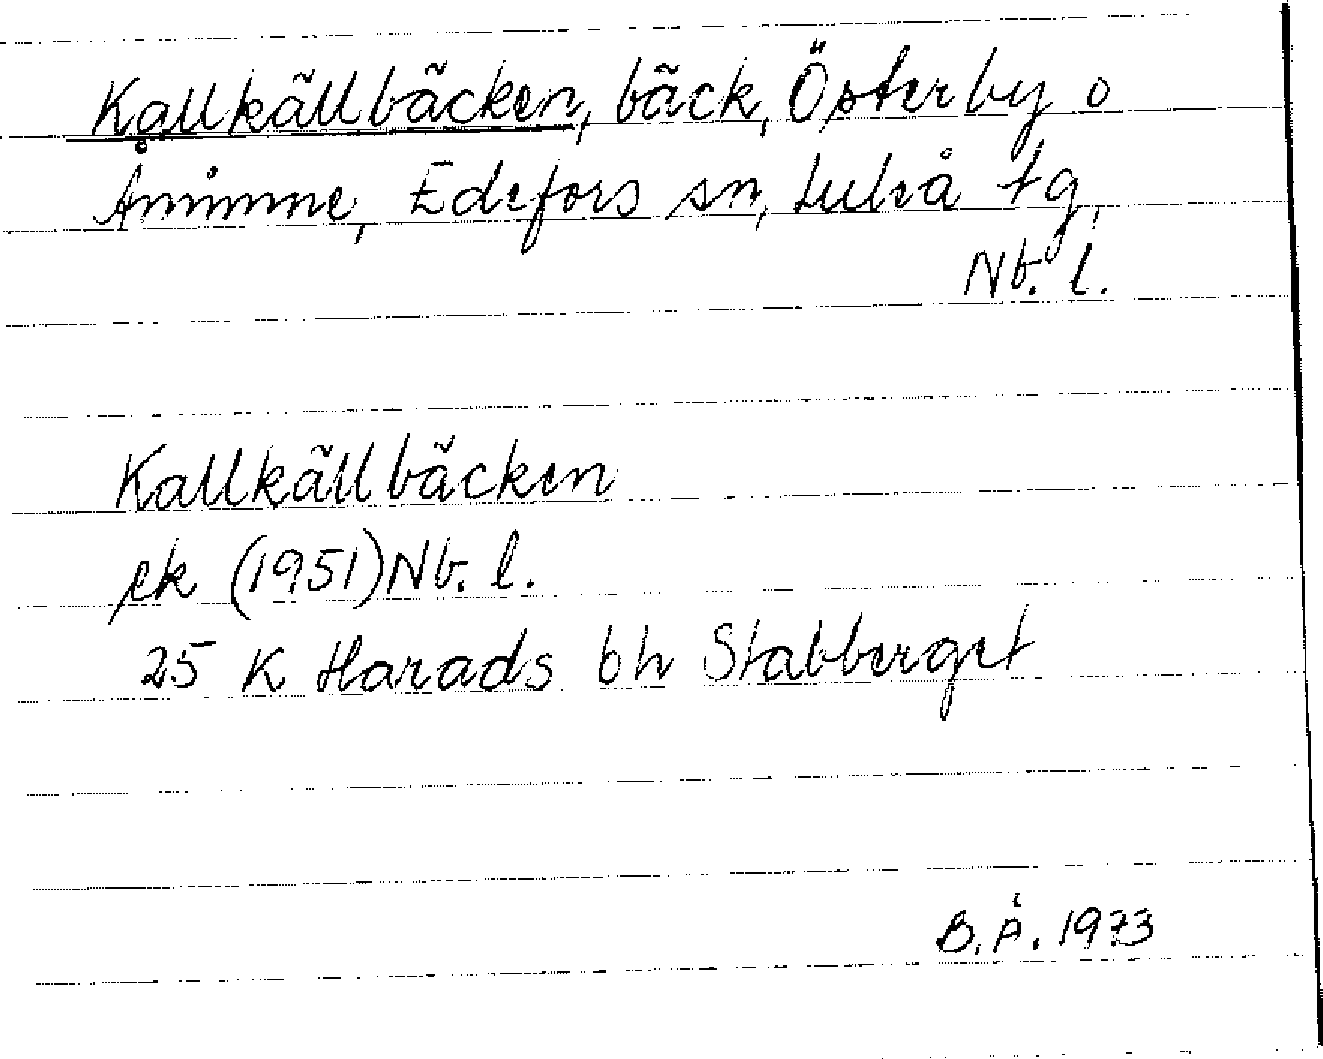 Kallkällbäcken, bäck, Österby o
Åminne, Edefors sn, Luleå tg,
Nb. l.
Kallkällbäcken
ek (1951) Nb. l.
25 K Harads bh Stabberget
B. Å. 1973